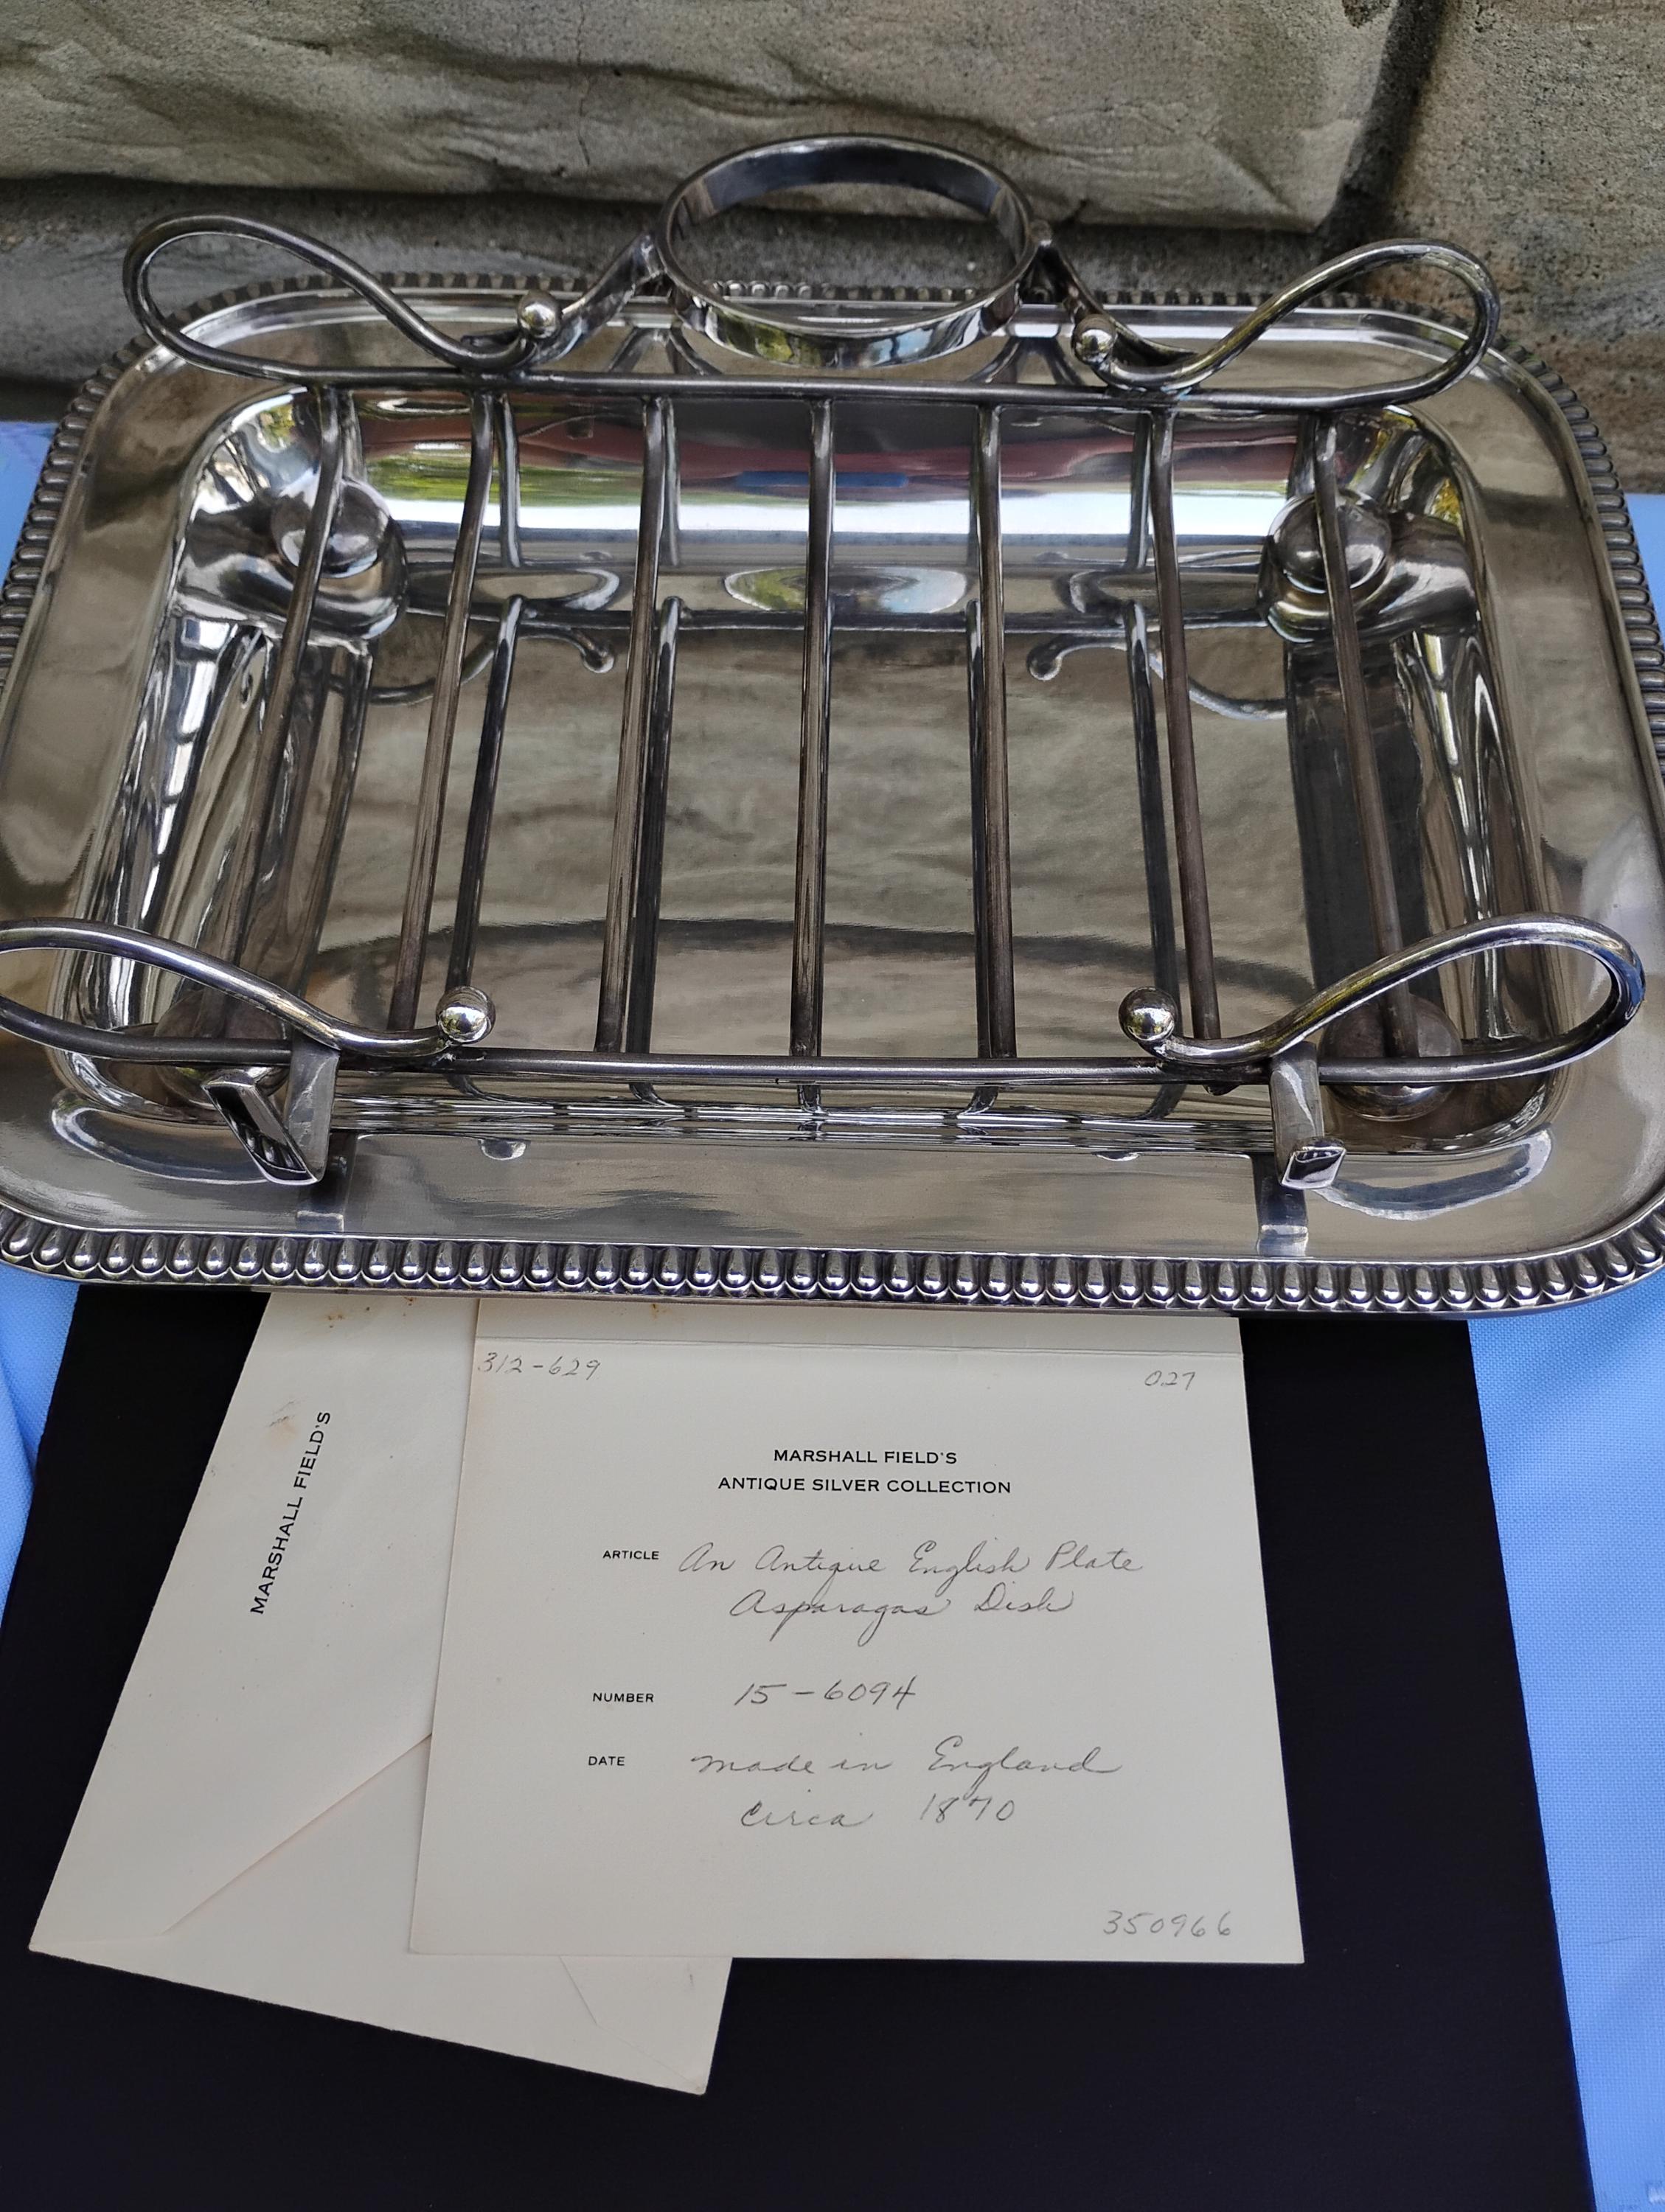 312-629
027
MARSHALL FIELD'S
MARSHALL FIELD'S
ANTIQUE SILVER COLLECTION
ARTICLE An Antique English Plate
Asparagas Dish
NUMBER 15-6094
DATE made in England
circa 1870
350966